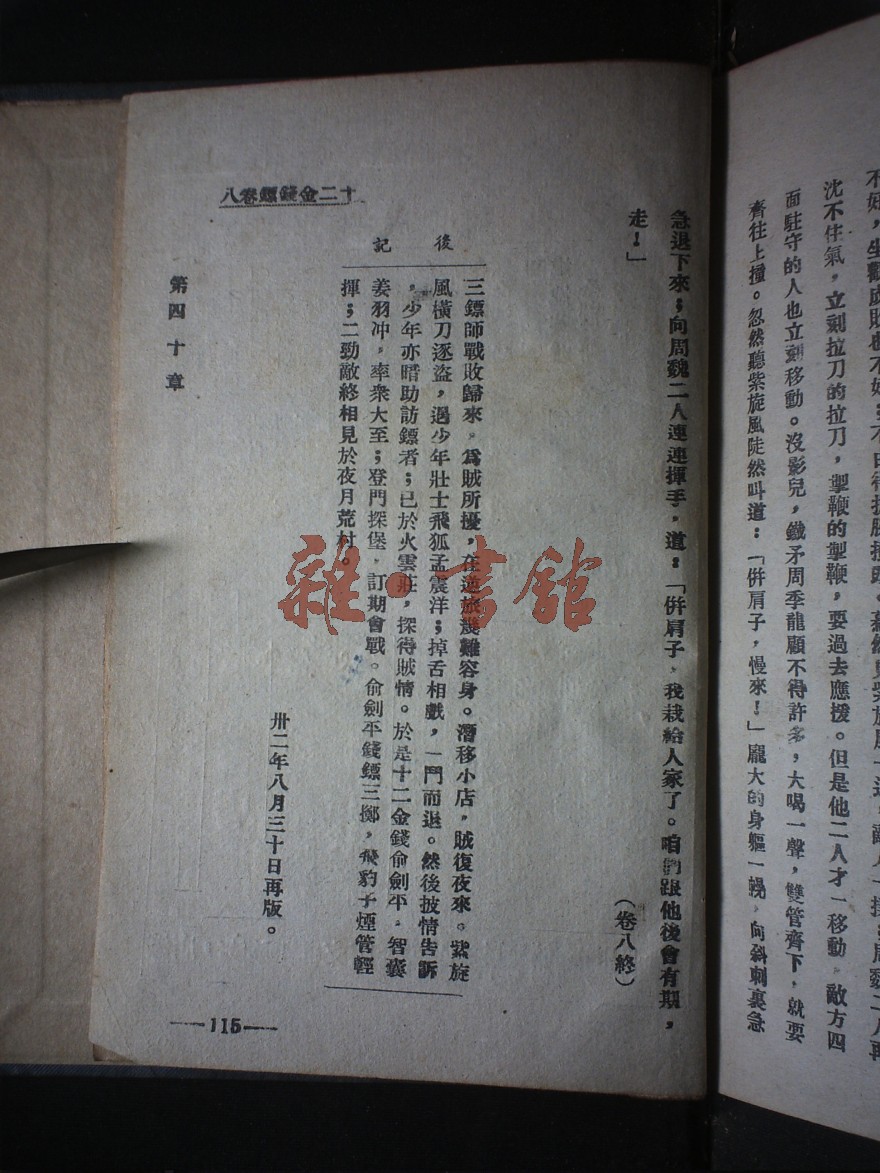 沈不住氣，立刻拉刀的拉刀，掣鞭的掣鞭，要過去應援。但是他二人才一移動，敵方四
面駐守的人也立刻移動。沒影兒，鐵矛周季龍顧不得許多，大喝一聲，雙管齊下，就要
齊往上撞。忽然聽紫旋風陡然叫道：「併肩子，慢來！」龐大的身軀一晃，向斜刺裏急
急退下來；向周魏二人連連揮手，道：「併肩子，我栽給人家了。咱們跟他後會有期，
走！」
（卷八終）
後記
三鏢師戰敗歸來，爲賊所擾，在逆旅幾難容身。潛移小店，賊復夜來。紫旋
風橫刀逐盜，遇少年壯士飛狐孟震洋；掉舌相戲，一鬥而退。然後披情告訴
，少年亦暗助訪鏢者；已於火雲莊，探得賊情。於是十二金錢俞劍平，智囊
姜羽冲，率衆大至；登門探堡，訂期會戰。俞劍平錢鏢三擲，飛豹子煙管輕
揮；二勁敵終相見於夜月荒村。
卅二年八月三十日再版。
十二金錢鏢卷八
第四十章
115
雜·書館